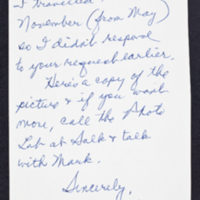 I travelled
November (from May)
so I didn't respond
to your request earlier.
Here's a copy of the
picture & if you want
more, call the Photo
Lab at Salk & talk
with Mark.
Sincerely,